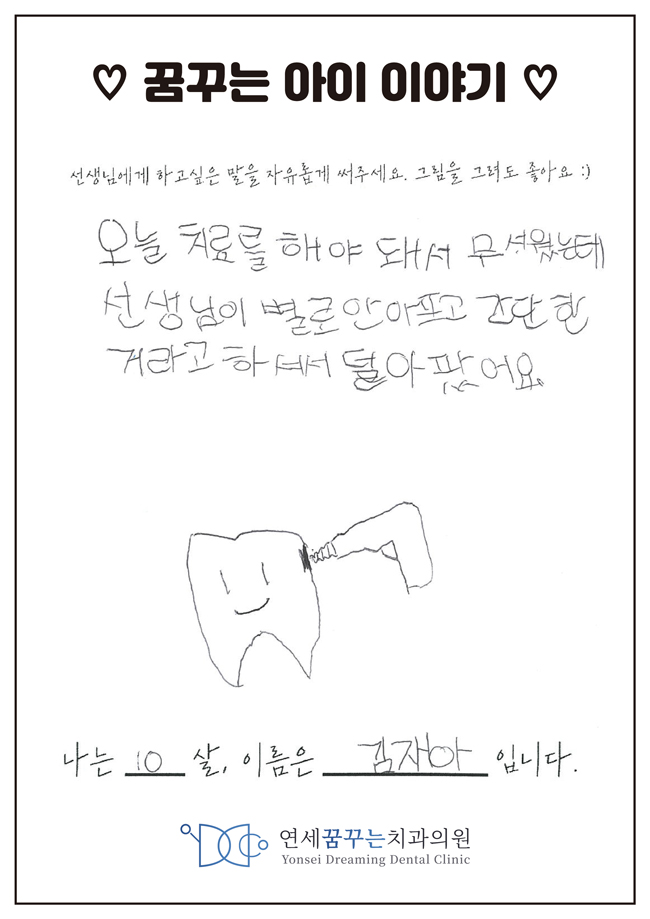 ♡ 꿈꾸는 아이 이야기 ♡
선생님에게 하고싶은 말을 자유롭게 써주세요. 그림을 그려도 좋아요 :)
오늘 치료를 해야 돼서 무셔웠는데
선생님이 별로 안 아프고 간단한
거라고 하셔서 덜 아팠어요.
나는 10 살, 이름은 김자아 입니다.
연세꿈꾸는치과의원
Yonsei Dreaming Dental Clinic